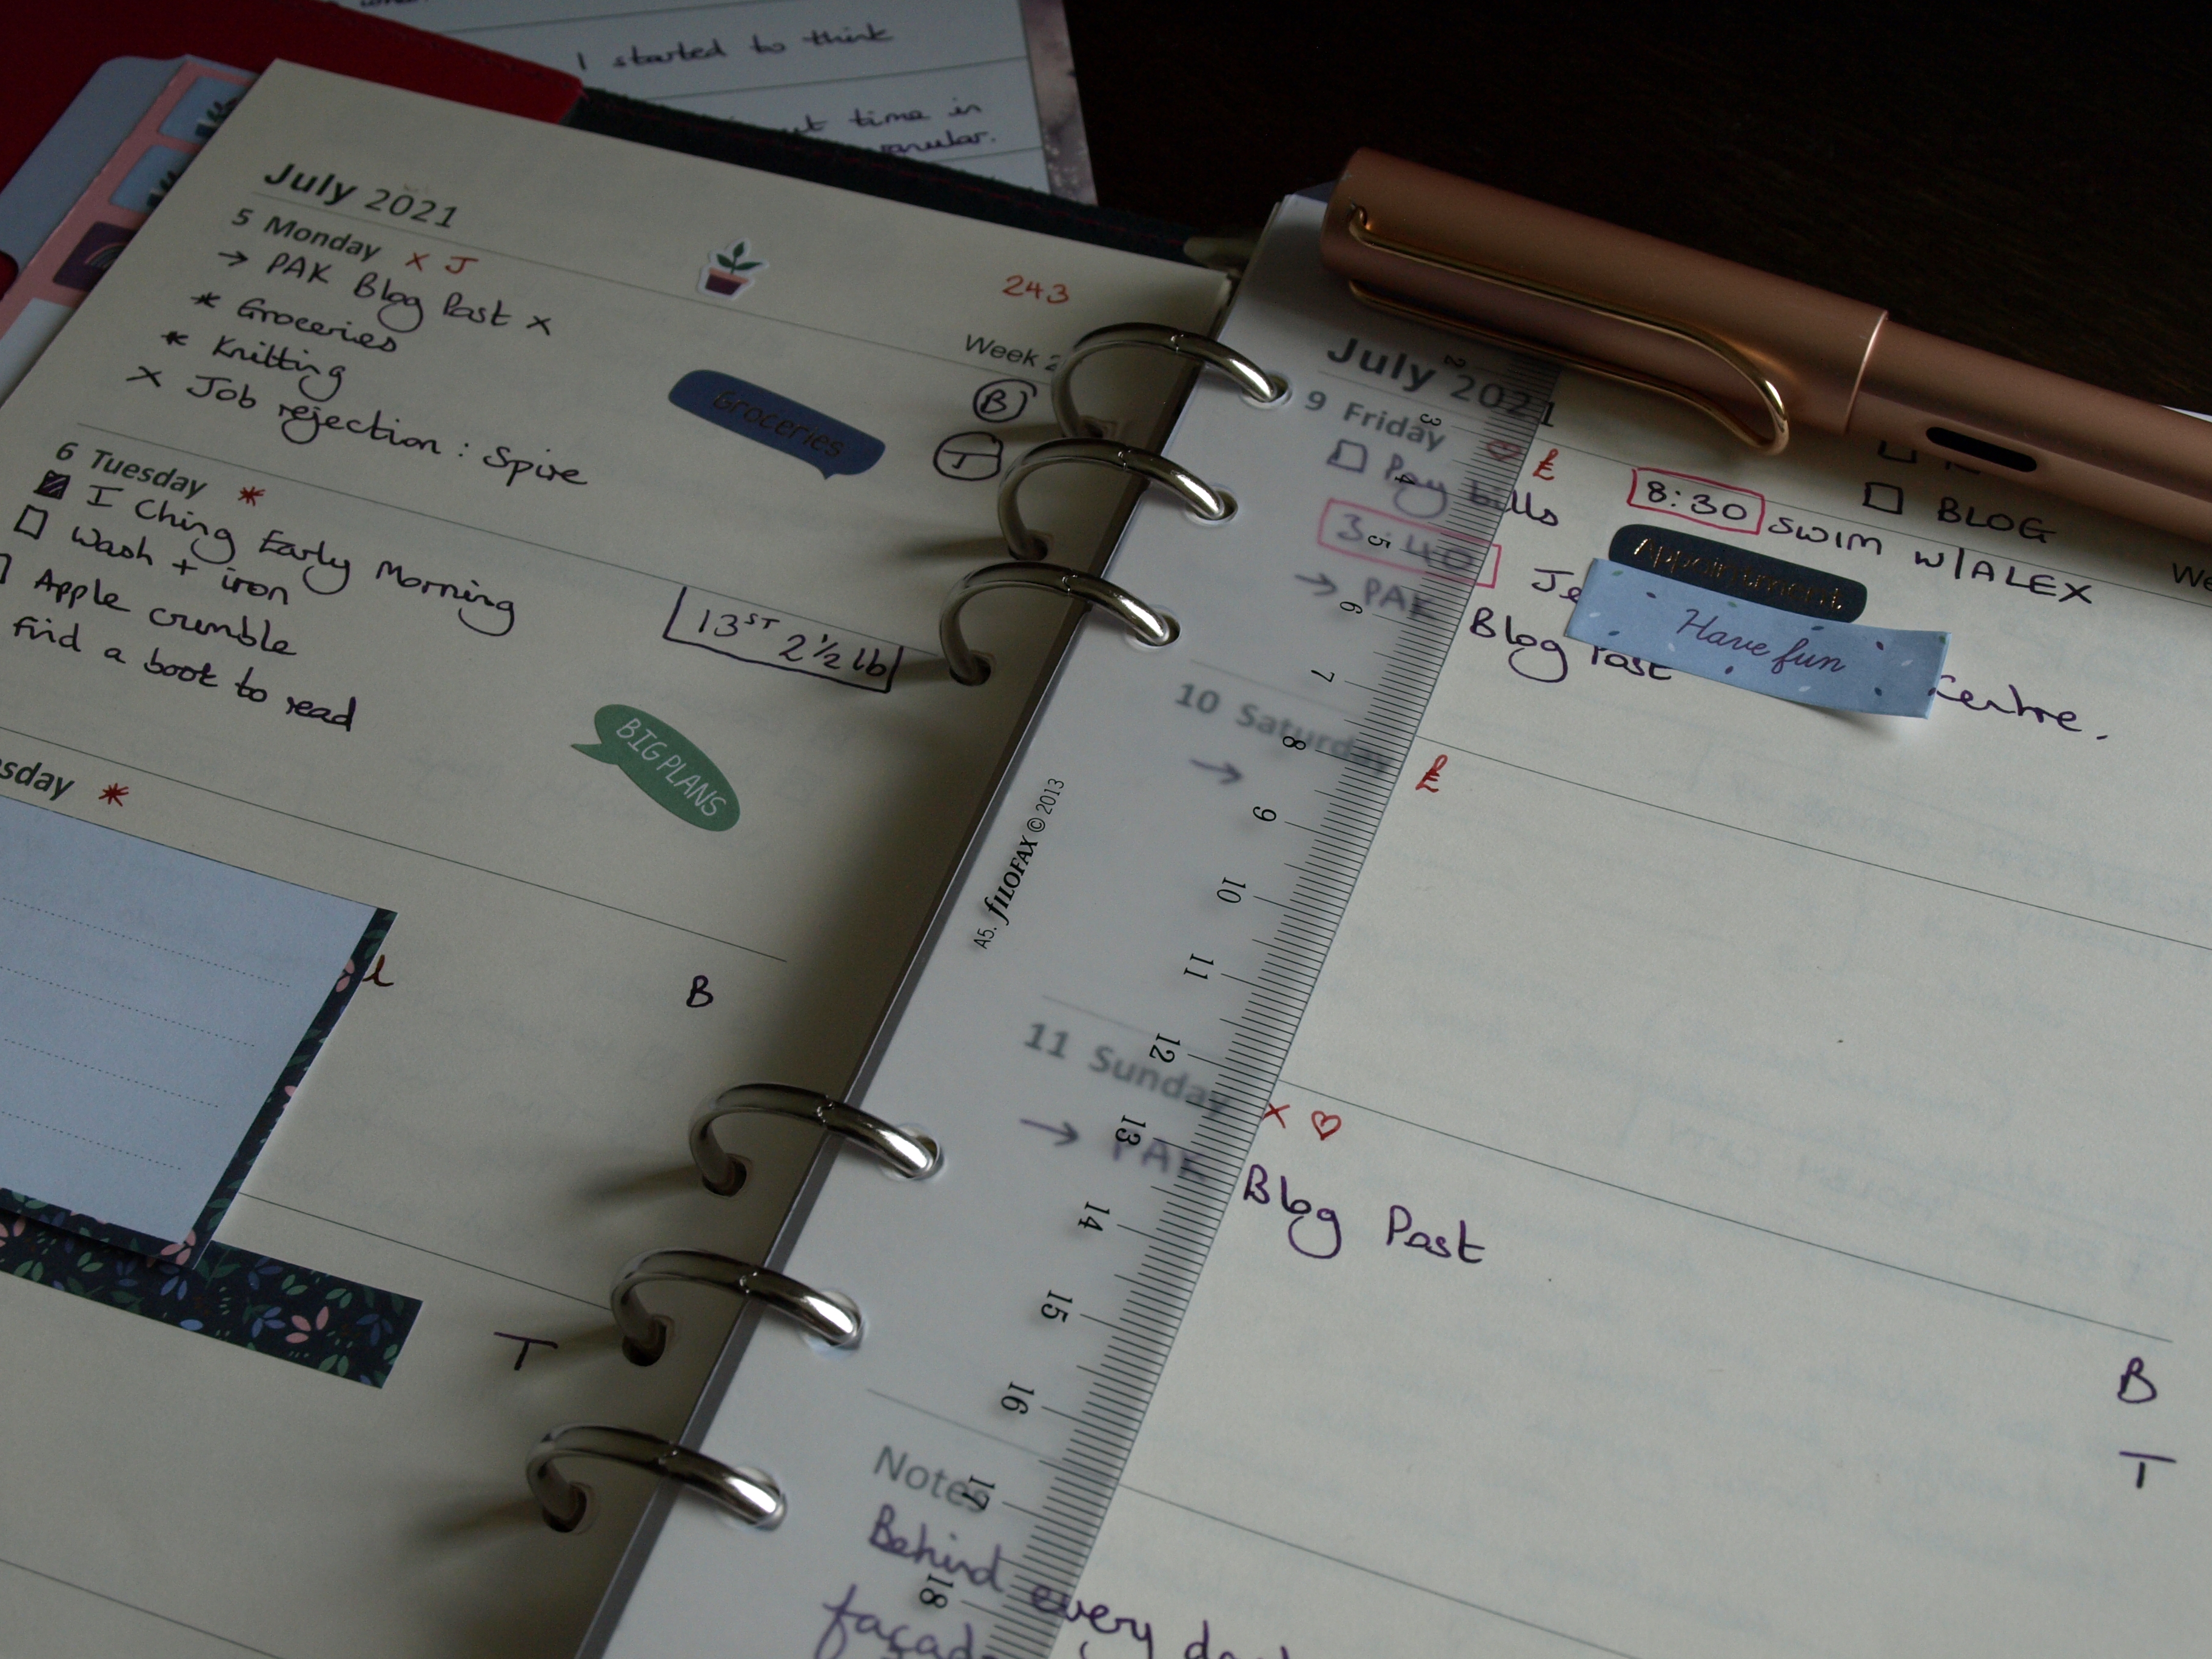 I started to think
time in
July 2021
5 Monday x J
243
→ PAK Blog Post x
Week 2
* Groceries
* Knitting
x Job rejection : Spire
Groceries
B
T
6 Tuesday *
I Ching Early Morning
Wash + iron
Apple crumble
Find a book to read
13ST 2½ lb
BIG PLANS
sday *
B
T
A5. FILOFAX © 2013
2 3 4 5 6 7 8 9 10 11 12 13 14 15 16 17 18
July 2021
9 Friday ♡ £
Pay bills
8:30 SWIM W/ALEX
BLOG
We
3:40
Appointment
Have fun
→ PAK Blog Post
Centre.
10 Saturday £
→
11 Sunday x ♡
→ PAK Blog Post
B
T
Notes
Behind every